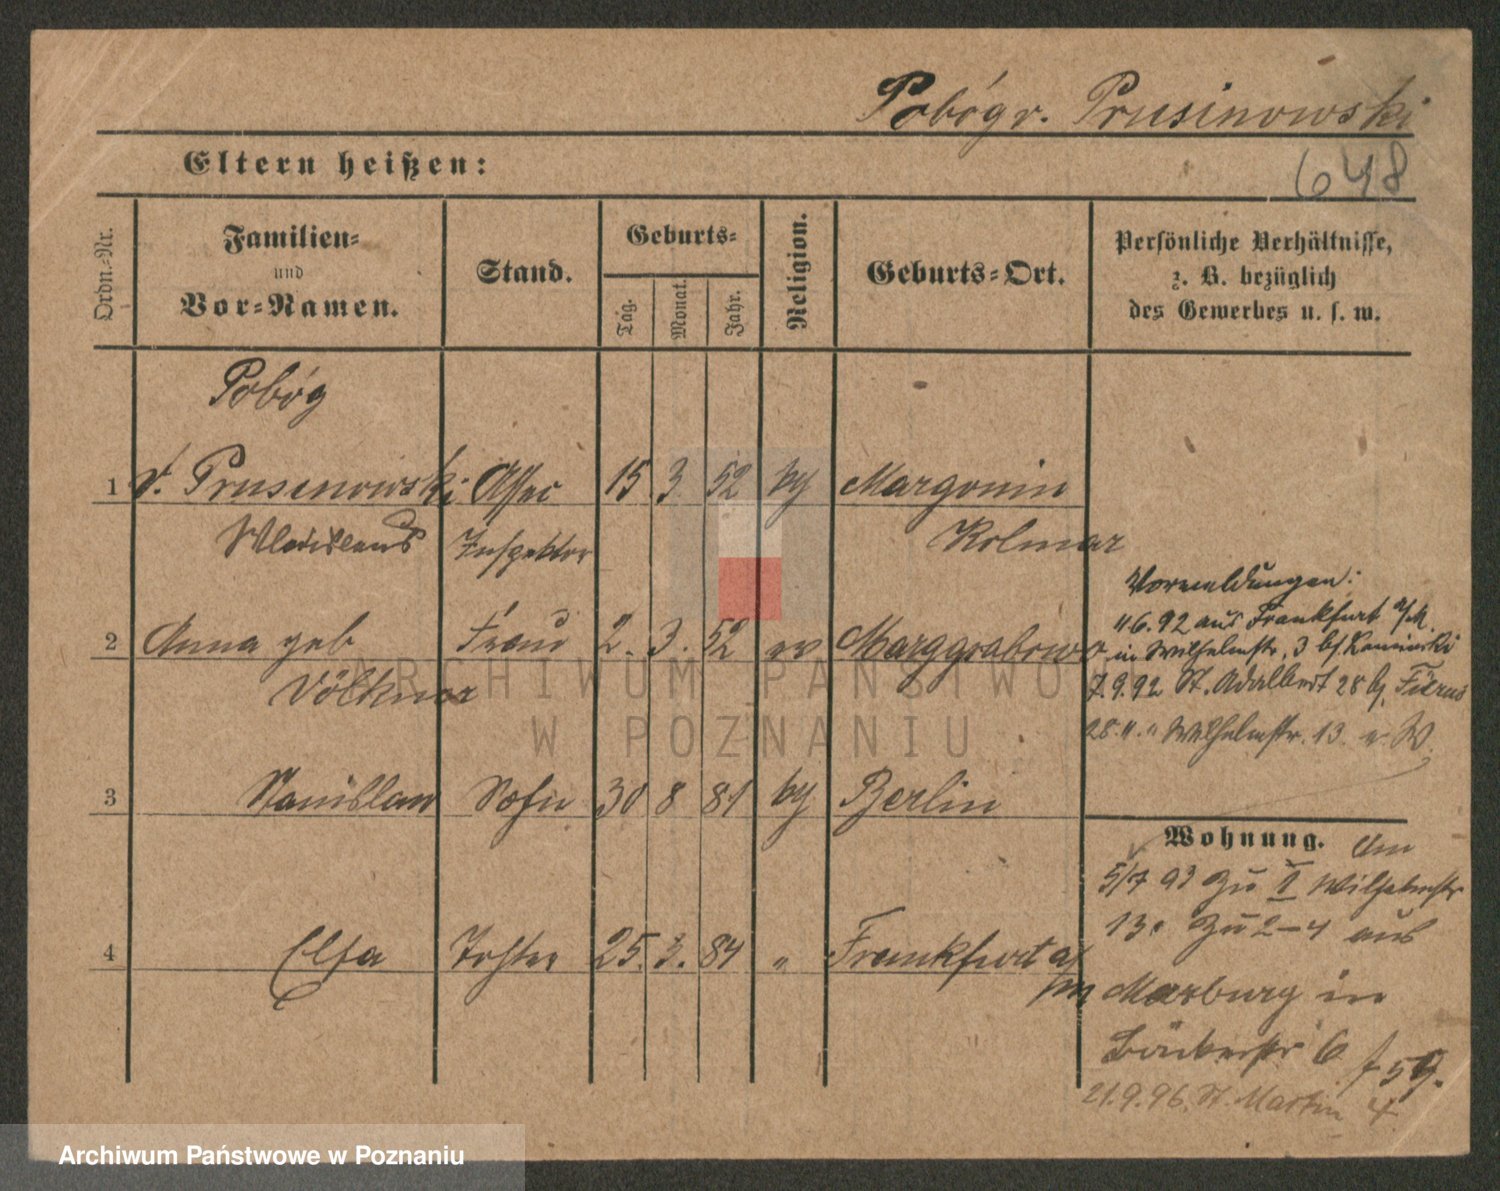 Pobóg v. Prusinowski
Eltern heißen:
648
Ordn.-Nr.
Familien-
und
Vor-Namen.
Stand.
Geburts-
Tag.
Monat.
Jahr.
Religion.
Geburts-Ort.
Persönliche Verhältnisse,
z. B. bezüglich
des Gewerbes u. s. w.
Pobóg
1 v. Prusinowski Assec 15 3 52 Margonin
Inspektor Kolmar
2 Anna geb Frau 2. 3. 52 ev Marggrabowo
Völkner
3 Stanislaw Sohn 30 8 81 Berlin
4 Elsa Tochter 25. 3. 84 " Frankfurt a/
m
Vormeldungen:
6.92 aus Frankfurt a/M.
in Wilhelmstr. 3 bei
7.9.92 St. Adalbert 28 bei
28. " . " Wilhelmstr. 13
Wohnung.
5/7 93 zu Wilhelmstr
13. zu 2-4 aus
Marburg in
Bäckerstr 6
21.9.96. St. Martin 4
ARCHIWUM PAŃSTWO
W POZNANIU
Archiwum Państwowe w Poznaniu